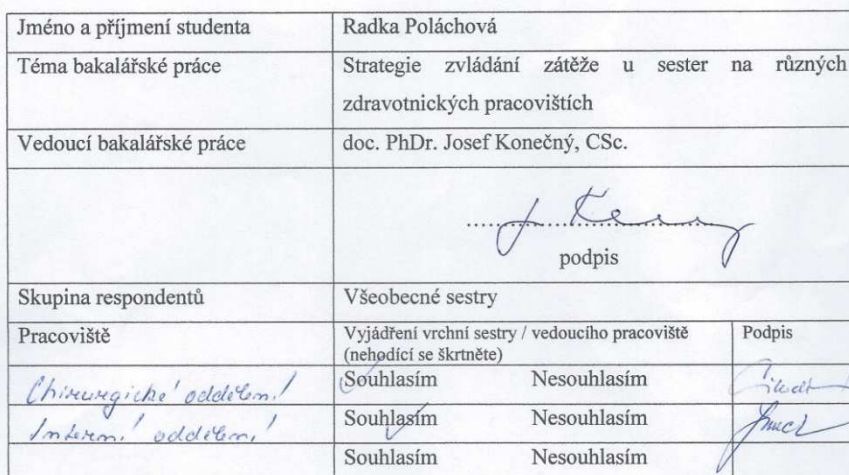 Jméno a příjmení studenta Radka Poláchová
Téma bakalářské práce Strategie zvládání zátěže u sester na různých
zdravotnických pracovištích
Vedoucí bakalářské práce doc. PhDr. Josef Konečný, CSc.
podpis
Skupina respondentů Všeobecné sestry
Pracoviště Vyjádření vrchní sestry / vedoucího pracoviště Podpis
(nehodící se škrtněte)
Chirurgické oddělení Souhlasím Nesouhlasím
Interní oddělení Souhlasím Nesouhlasím
Souhlasím Nesouhlasím